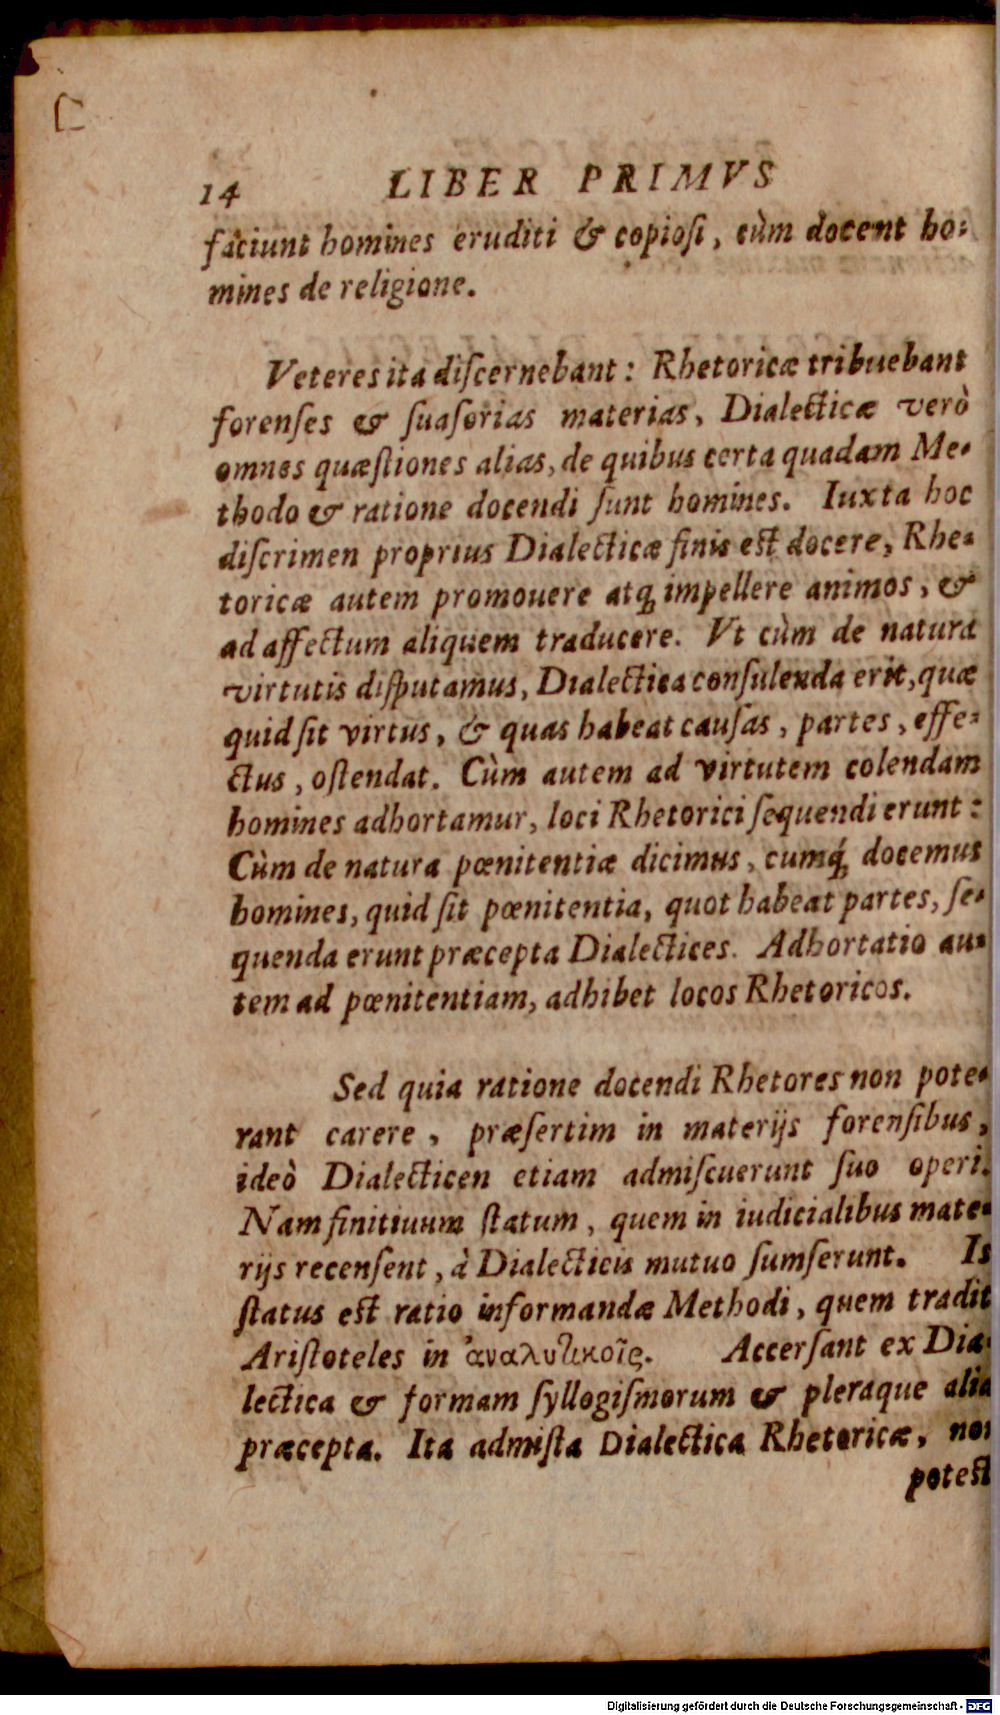 14 LIBER PRIMVS
faciunt homines eruditi & copiosi, cùm docent ho-
mines de religione.
Veteres ita discernebant: Rhetoricæ tribuebant
forenses & suasorias materias, Dialecticæ verò
omnes quæstiones alias, de quibus certa quadam Me-
thodo & ratione docendi sunt homines. Iuxta hoc
discrimen proprius Dialecticæ finis est docere, Rhe-
toricæ autem promouere atq; impellere animos, &
ad affectum aliquem traducere. Vt cùm de natura
virtutis disputamus, Dialectica consulenda erit, quæ
quid sit virtus, & quas habeat causas, partes, effe-
ctus, ostendat. Cùm autem ad virtutem colendam
homines adhortamur, loci Rhetorici sequendi erunt:
Cùm de natura pœnitentiæ dicimus, cumq́; docemus
homines, quid sit pœnitentia, quot habeat partes, se-
quenda erunt præcepta Dialectices. Adhortatio au-
tem ad pœnitentiam, adhibet locos Rhetoricos.
Sed quia ratione docendi Rhetores non pote-
rant carere, præsertim in materijs forensibus,
ideò Dialecticen etiam admiscuerunt suo operi.
Nam finitiuum statum, quem in iudicialibus mate-
rijs recensent, à Dialecticis mutuo sumserunt. Is
status est ratio informandæ Methodi, quem tradit
Aristoteles in ἀναλυτικοῖς. Accersant ex Dia-
lectica & formam syllogismorum & pleraque alia
præcepta. Ita admista Dialectica Rhetoricæ, non
potest
Digitalisierung gefördert durch die Deutsche Forschungsgemeinschaft - DFG